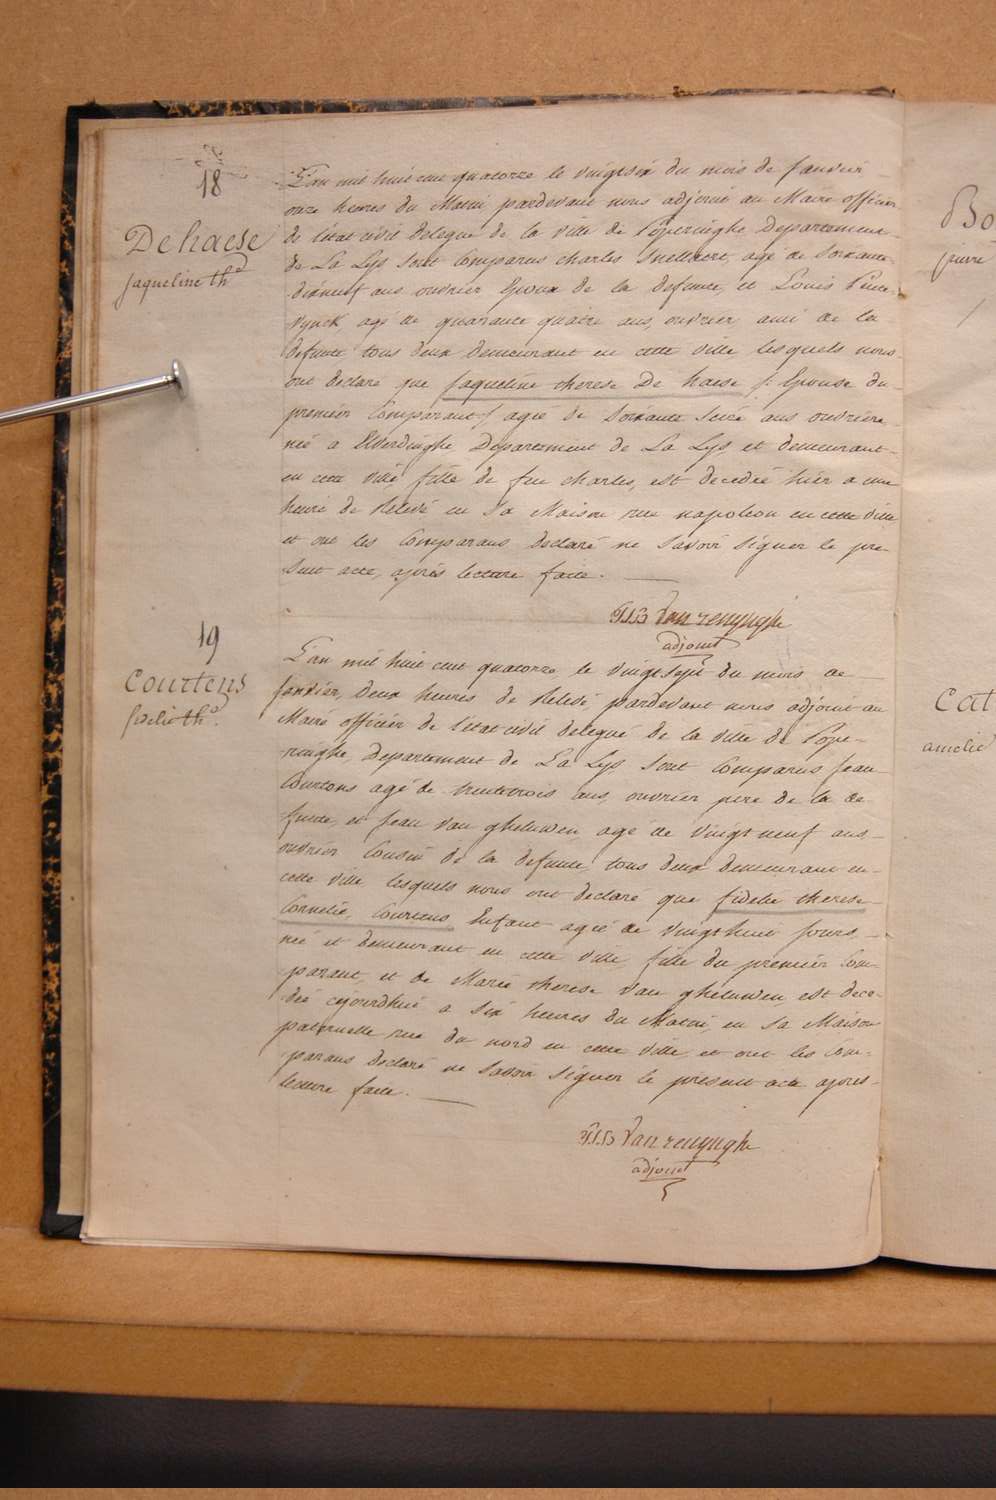 18
Dehaese
Jaqueline thé
L'an mil huit cent quatorze le vingtsix du mois de Janvier
onze heures du Matin pardevant nous adjoint au Maire officier
de l'état civil delegué de la ville de Poperinghe, Departement
de La Lys sont Comparus charles Snellaert, agé de soixante
dixneuf ans ouvrier Epoux de la defunte, et Louis
agé de quarante quatre ans, ouvrier ami de la
defunte tous deux demeurant en cette ville lesquels nous
ont declaré que Jaqueline therese De haese /: Epouse du
premier Comparant :/ agée de soixante seize ans ouvrière
née a Elverdinghe Departement de La Lys et demeurant
en cette ville, fille de feu charles, est decedée hier a une
heure de Relevé en sa Maison rue napoleon en cette ville
et ont les Comparans declaré ne savoir signer le pre-
sent acte, après lecture faite.
Van renynghe
adjoint
19
Courtens
fidelie thé.
L'an mil huit cent quatorze le vingtsept du mois de
Janvier, deux heures de Relevé pardevant nous adjoint au
Maire officier de l'état civil delegué de la ville de Pope-
ringhe, Departement de La Lys sont Comparus Jean
Courtens agé de trentetrois ans, ouvrier pere de la de
funte, et Jean Van gheluwen, agé de vingt neuf ans
ouvrier Cousin de la defunte, tous deux demeurant en
cette ville lesquels nous ont declaré que fidelie therese
Cornelie, Courtens Enfant agée de vingthuit jours,
née et demeurant en cette ville, fille du premier Com-
parant et de Marie therese Van gheluwen est dece-
dée cejourdhui a six heures du Matin, en sa Maison
paternelle rue du nord en cette ville et ont les Com-
parans declaré ne savoir signer le present acte après
lecture faite.
Van renynghe
adjoint
Bo
pierre
Cat
amelie